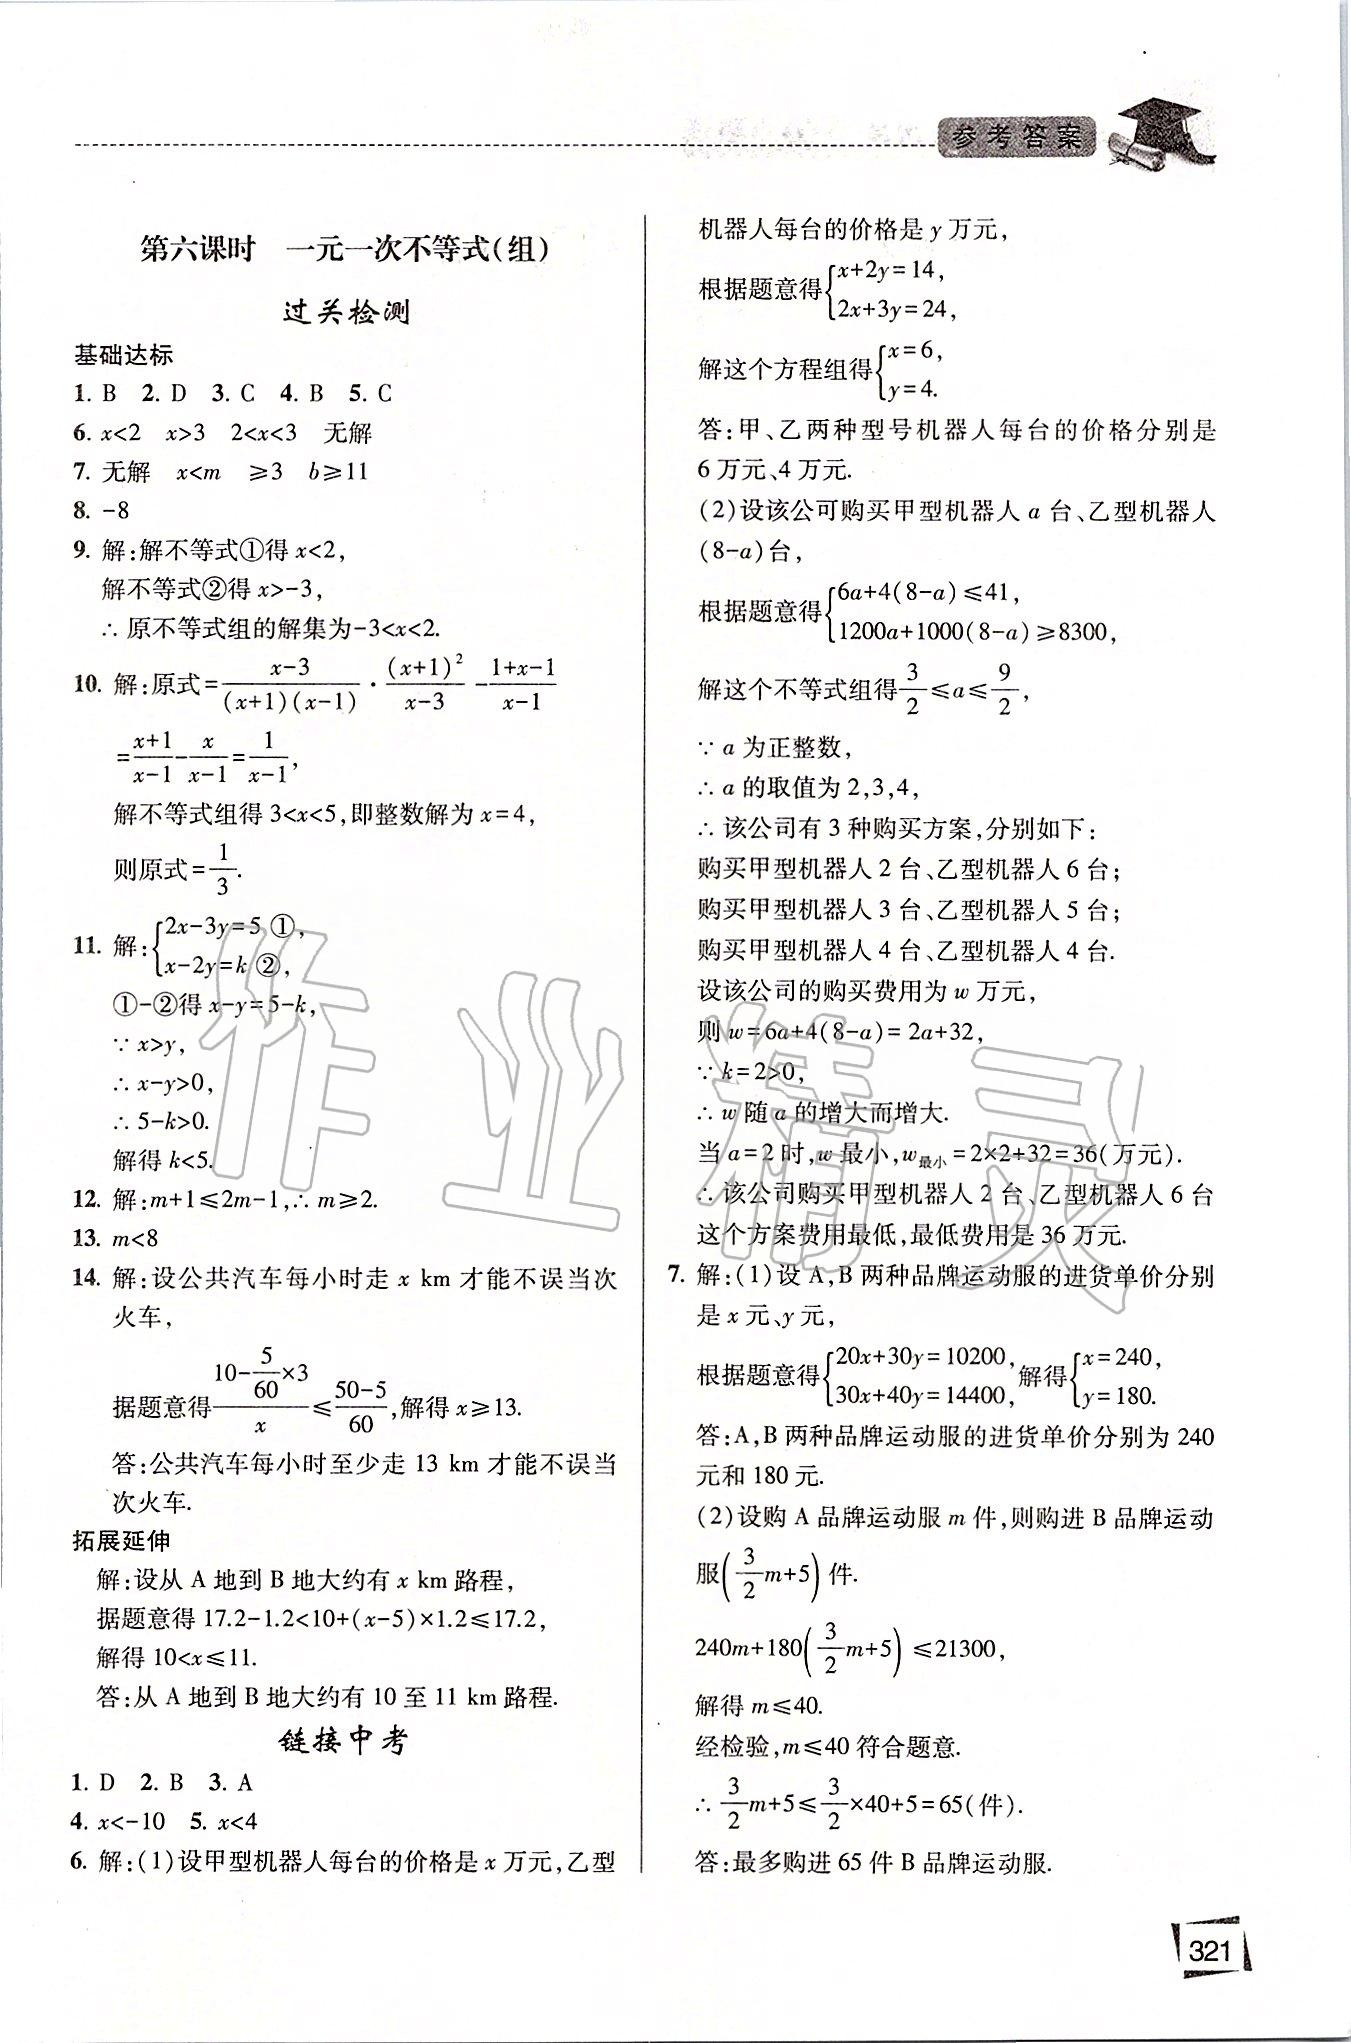 参考答案
第六课时 一元一次不等式(组)
过关检测
基础达标
1. B 2. D 3. C 4. B 5. C
6. x<2 x>3 2<x<3 无解
7. 无解 x<m ≥3 b≥11
8. -8
9. 解:解不等式①得 x<2,
解不等式②得 x>-3,
∴ 原不等式组的解集为-3<x<2.
10. 解:原式=(x-3)/((x+1)(x-1))·(x+1)²/(x-3)-(1+x-1)/(x-1)
=(x+1)/(x-1)-x/(x-1)=1/(x-1),
解不等式组得 3<x<5,即整数解为 x=4,
则原式=1/3.
11. 解:{2x-3y=5 ①,
x-2y=k ②,
①-②得 x-y=5-k,
∵ x>y,
∴ x-y>0,
∴ 5-k>0.
解得 k<5.
12. 解:m+1≤2m-1,∴ m≥2.
13. m<8
14. 解:设公共汽车每小时走 x km 才能不误当次
火车,
据题意得(10-5/60×3)/x≤(50-5)/60,解得 x≥13.
答:公共汽车每小时至少走 13 km 才能不误当
次火车.
拓展延伸
解:设从 A 地到 B 地大约有 x km 路程,
据题意得 17.2-1.2<10+(x-5)×1.2≤17.2,
解得 10<x≤11.
答:从 A 地到 B 地大约有 10 至 11 km 路程.
链接中考
1. D 2. B 3. A
4. x<-10 5. x<4
6. 解:(1)设甲型机器人每台的价格是 x 万元,乙型
机器人每台的价格是 y 万元,
根据题意得{x+2y=14,
2x+3y=24,
解这个方程组得{x=6,
y=4.
答:甲、乙两种型号机器人每台的价格分别是
6 万元、4 万元.
(2)设该公可购买甲型机器人 a 台、乙型机器人
(8-a)台,
根据题意得{6a+4(8-a)≤41,
1200a+1000(8-a)≥8300,
解这个不等式组得3/2≤a≤9/2,
∵ a 为正整数,
∴ a 的取值为 2,3,4,
∴ 该公司有 3 种购买方案,分别如下:
购买甲型机器人 2 台、乙型机器人 6 台;
购买甲型机器人 3 台、乙型机器人 5 台;
购买甲型机器人 4 台、乙型机器人 4 台.
设该公司的购买费用为 w 万元,
则 w=6a+4(8-a)=2a+32,
∵ k=2>0,
∴ w 随 a 的增大而增大.
当 a=2 时,w 最小,w最小=2×2+32=36(万元).
∴ 该公司购买甲型机器人 2 台、乙型机器人 6 台
这个方案费用最低,最低费用是 36 万元.
7. 解:(1)设 A,B 两种品牌运动服的进货单价分别
是 x 元、y 元,
根据题意得{20x+30y=10200,解得{x=240,
30x+40y=14400, y=180.
答:A,B 两种品牌运动服的进货单价分别为 240
元和 180 元.
(2)设购 A 品牌运动服 m 件,则购进 B 品牌运动
服(3/2m+5)件.
240m+180(3/2m+5)≤21300,
解得 m≤40.
经检验,m≤40 符合题意.
∴ 3/2m+5≤3/2×40+5=65(件).
答:最多购进 65 件 B 品牌运动服.
作业精灵
321